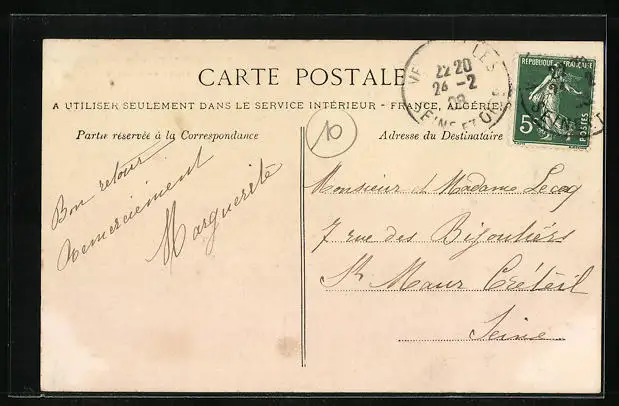 CARTE POSTALE
A UTILISER SEULEMENT DANS LE SERVICE INTÉRIEUR - FRANCE, ALGÉRIE
Partie réservée à la Correspondance
Adresse du Destinataire
10
22 20
24 - 2
08
SEINE ET O
REPUBLIQUE FRANÇAISE
5
POSTES
Bon retour
Remerciement
Marguerite
Monsieur et Madame Lecoq
7 rue des Bijoutiers
St Maur Créteil
Seine